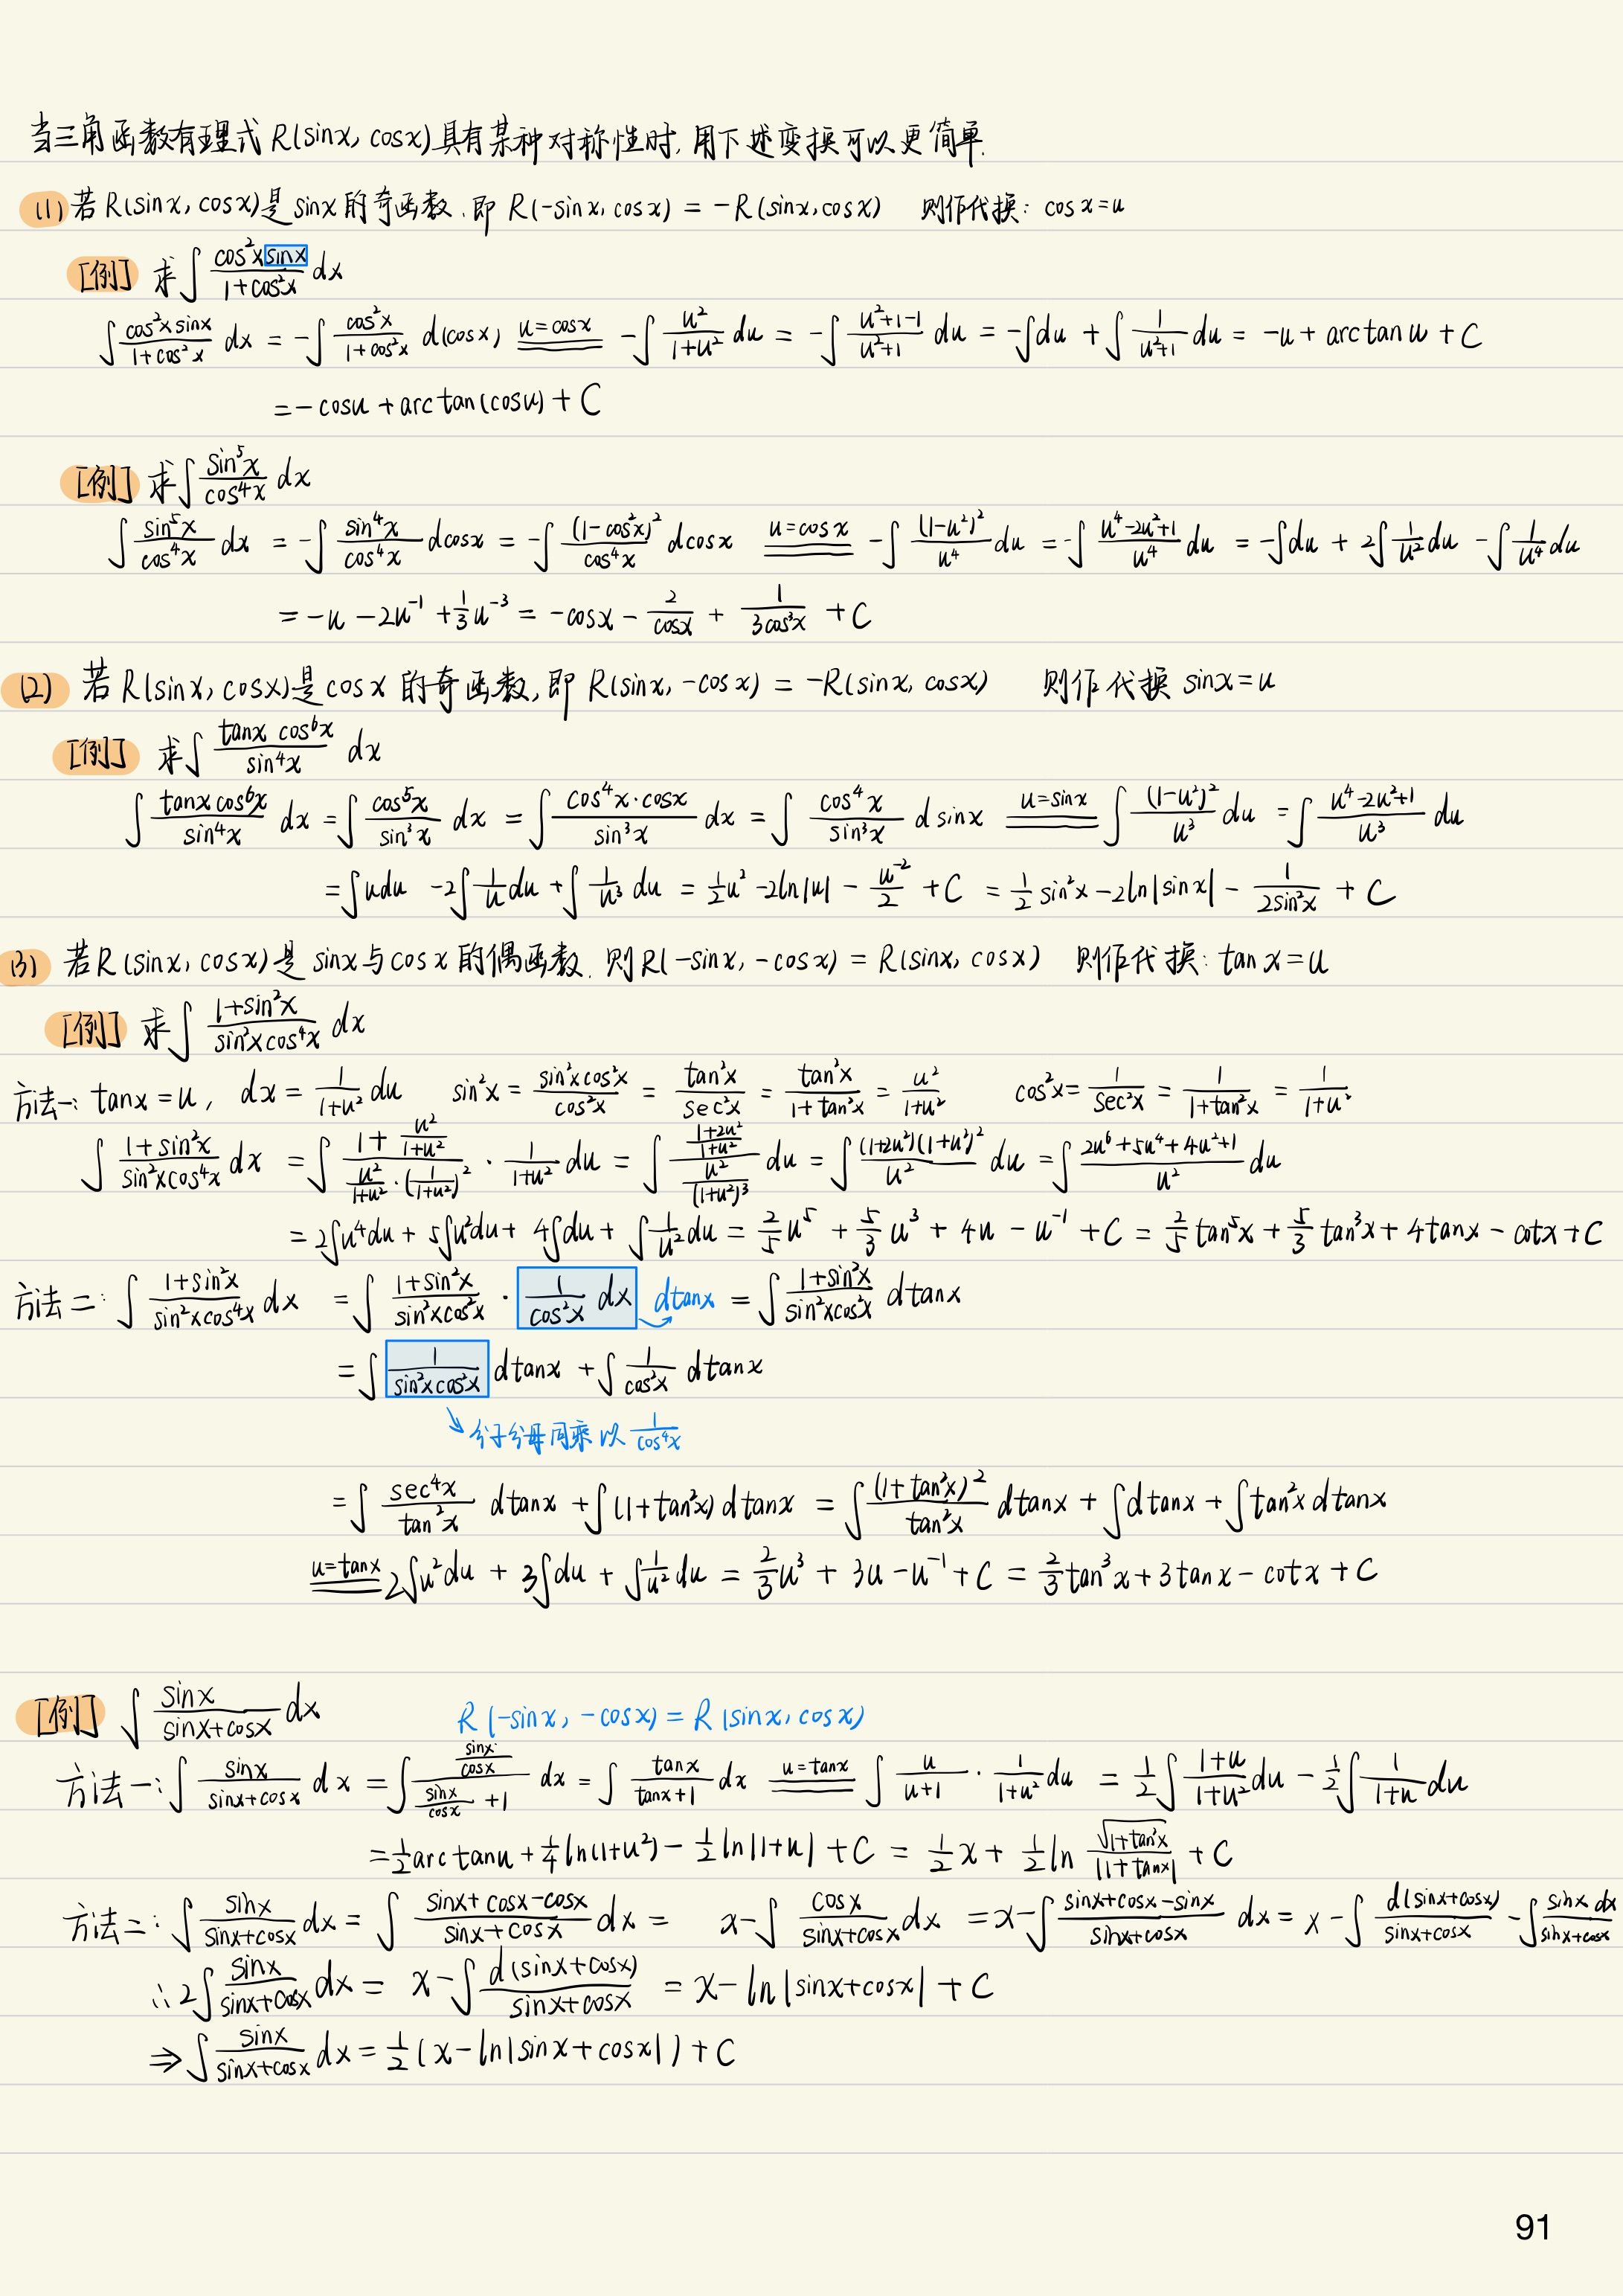 当三角函数有理式 R(sinx, cosx)具有某种对称性时, 用下述变换可以更简单.
(1) 若 R(sinx, cosx)是 sinx 的奇函数, 即 R(-sinx, cosx) = -R(sinx, cosx) 则作代换: cosx=u
[例] 求∫ (cos²x sinx)/(1+cos²x) dx
∫ (cos²x sinx)/(1+cos²x) dx = -∫ cos²x/(1+cos²x) d(cosx) u=cosx -∫ u²/(1+u²) du = -∫ (u²+1-1)/(u²+1) du = -∫du + ∫ 1/(u²+1) du = -u + arctan u + C
= -cosu + arctan(cosu) + C
[例] 求∫ sin⁵x/cos⁴x dx
∫ sin⁵x/cos⁴x dx = -∫ sin⁴x/cos⁴x dcosx = -∫ (1-cos²x)²/cos⁴x dcosx u=cosx -∫ (1-u²)²/u⁴ du = -∫ (u⁴-2u²+1)/u⁴ du = -∫du + 2∫ 1/u² du - ∫ 1/u⁴ du
= -u - 2u⁻¹ + 1/3 u⁻³ = -cosx - 2/cosx + 1/(3cos³x) + C
(2) 若 R(sinx, cosx)是 cosx 的奇函数, 即 R(sinx, -cosx) = -R(sinx, cosx) 则作代换 sinx=u
[例] 求∫ (tanx cos⁶x)/sin⁴x dx
∫ (tanx cos⁶x)/sin⁴x dx = ∫ cos⁵x/sin³x dx = ∫ (cos⁴x·cosx)/sin³x dx = ∫ cos⁴x/sin³x dsinx u=sinx ∫ (1-u²)²/u³ du = ∫ (u⁴-2u²+1)/u³ du
= ∫udu - 2∫ 1/u du + ∫ 1/u³ du = 1/2 u² - 2ln|u| - u⁻²/2 + C = 1/2 sin²x - 2ln|sinx| - 1/(2sin²x) + C
(3) 若 R(sinx, cosx)是 sinx与cosx 的偶函数, 则R(-sinx, -cosx) = R(sinx, cosx) 则作代换: tanx=u
[例] 求∫ (1+sin²x)/(sin²xcos⁴x) dx
方法一: tanx=u, dx = 1/(1+u²) du sin²x = (sin²xcos²x)/cos²x = tan²x/sec²x = tan²x/(1+tan²x) = u²/(1+u²) cos²x = 1/sec²x = 1/(1+tan²x) = 1/(1+u²)
∫ (1+sin²x)/(sin²xcos⁴x) dx = ∫ (1 + u²/(1+u²))/(u²/(1+u²)·(1/(1+u²))²) · 1/(1+u²) du = ∫ ((1+2u²)/(1+u²))/(u²/(1+u²)³) du = ∫ (1+2u²)(1+u²)²/u² du = ∫ (2u⁶+5u⁴+4u²+1)/u² du
= 2∫u⁴du + 5∫u²du + 4∫du + ∫ 1/u² du = 2/5 u⁵ + 5/3 u³ + 4u - u⁻¹ + C = 2/5 tan⁵x + 5/3 tan³x + 4tanx - cotx + C
方法二: ∫ (1+sin²x)/(sin²xcos⁴x) dx = ∫ (1+sin²x)/(sin²xcos²x) · 1/cos²x dx dtanx = ∫ (1+sin²x)/(sin²xcos²x) dtanx
= ∫ 1/(sin²xcos²x) dtanx + ∫ 1/cos²x dtanx
分子分母同乘以 1/cos⁴x
= ∫ sec⁴x/tan²x dtanx + ∫(1+tan²x)dtanx = ∫ (1+tan²x)²/tan²x dtanx + ∫dtanx + ∫tan²x dtanx
u=tanx 2∫u²du + 3∫du + ∫ 1/u² du = 2/3 u³ + 3u - u⁻¹ + C = 2/3 tan³x + 3tanx - cotx + C
[例] ∫ sinx/(sinx+cosx) dx R(-sinx, -cosx) = R(sinx, cosx)
方法一: ∫ sinx/(sinx+cosx) dx = ∫ (sinx/cosx)/(sinx/cosx + 1) dx = ∫ tanx/(tanx+1) dx u=tanx ∫ u/(u+1) · 1/(1+u²) du = 1/2 ∫ (1+u)/(1+u²) du - 1/2 ∫ 1/(1+u) du
= 1/2 arctanu + 1/4 ln(1+u²) - 1/2 ln|1+u| + C = 1/2 x + 1/2 ln √(1+tan²x)/|1+tanx| + C
方法二: ∫ sinx/(sinx+cosx) dx = ∫ (sinx+cosx-cosx)/(sinx+cosx) dx = x-∫ cosx/(sinx+cosx) dx = x-∫ (sinx+cosx-sinx)/(sinx+cosx) dx = x - ∫ d(sinx+cosx)/(sinx+cosx) - ∫ sinx dx/(sinx+cosx)
∴ 2∫ sinx/(sinx+cosx) dx = x-∫ d(sinx+cosx)/(sinx+cosx) = x - ln|sinx+cosx| + C
⇒ ∫ sinx/(sinx+cosx) dx = 1/2 (x - ln|sinx+cosx|) + C
91